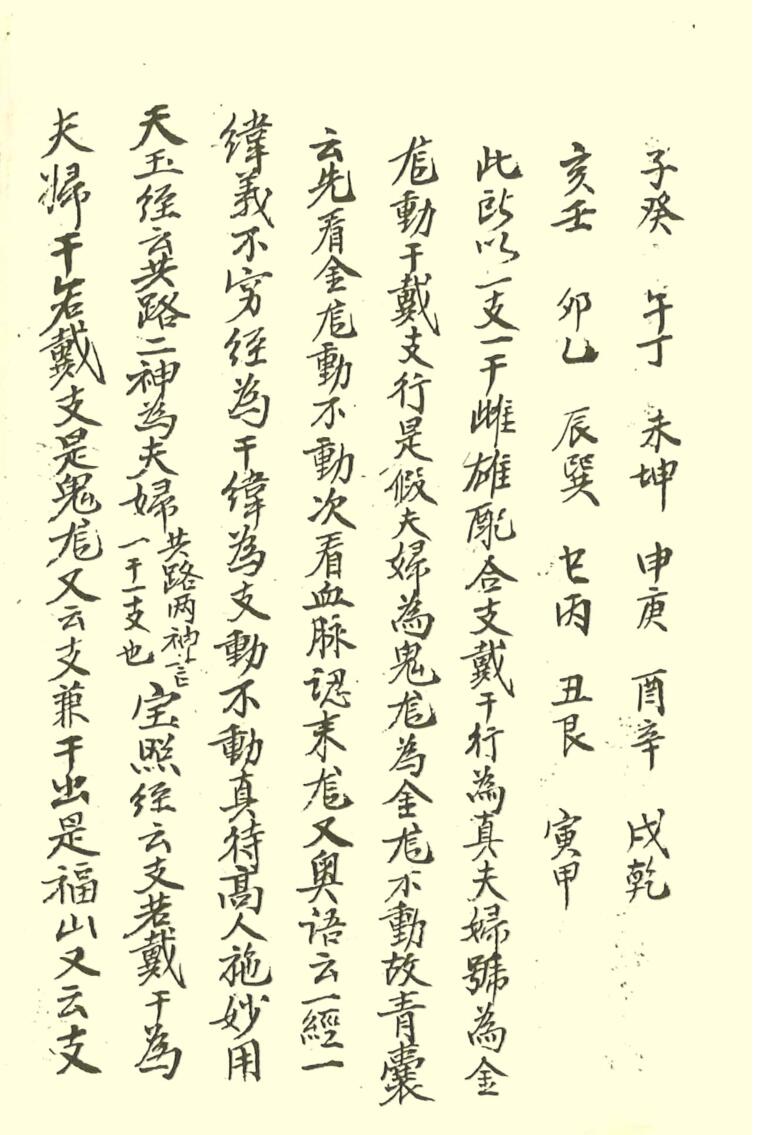 子癸 午丁 未坤 申庚 酉辛 戌乾
亥壬 卯乙 辰巽 巳丙 丑艮 寅甲
此所以一支一干雌雄配合支戴干行為真夫婦號為金
龙動干戴支行是假夫婦為鬼龙為金龙不動故青囊
云先看金龙動不動次看血脉認来龙又奥语云一經一
緯義不穷经為干緯為支動不動真待高人施妙用
天玉经云共路二神為夫婦共路两神言一干一支也宝照经云支若戴干為
夫婦干若戴支是鬼龙又云支兼干出是福山又云支